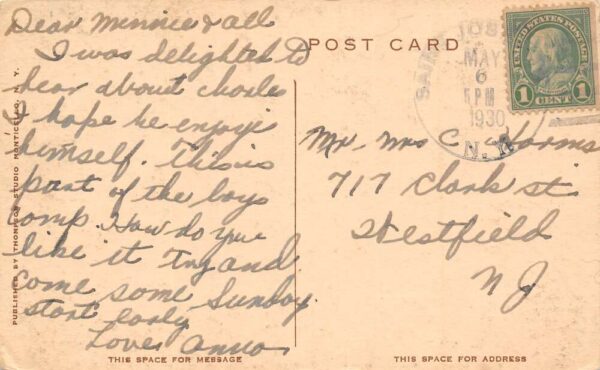 Dear Minnie & all
I was delighted to
hear about Charles
I hope he enjoys
himself. This is
part of the boys
camp. How do you
like it Try and
come some Sunday.
start early
Love Anna
PUBLISHED BY THOMPSON STUDIO MONTICELLO, N. Y.
THIS SPACE FOR MESSAGE
POST CARD
SAINT JOS
MAY
6
5 PM
1930
N.
UNITED STATES POSTAGE
FRANKLIN
1 CENT 1
Mr. Mrs C. Harms
717 Clark st
Westfield
N J
THIS SPACE FOR ADDRESS